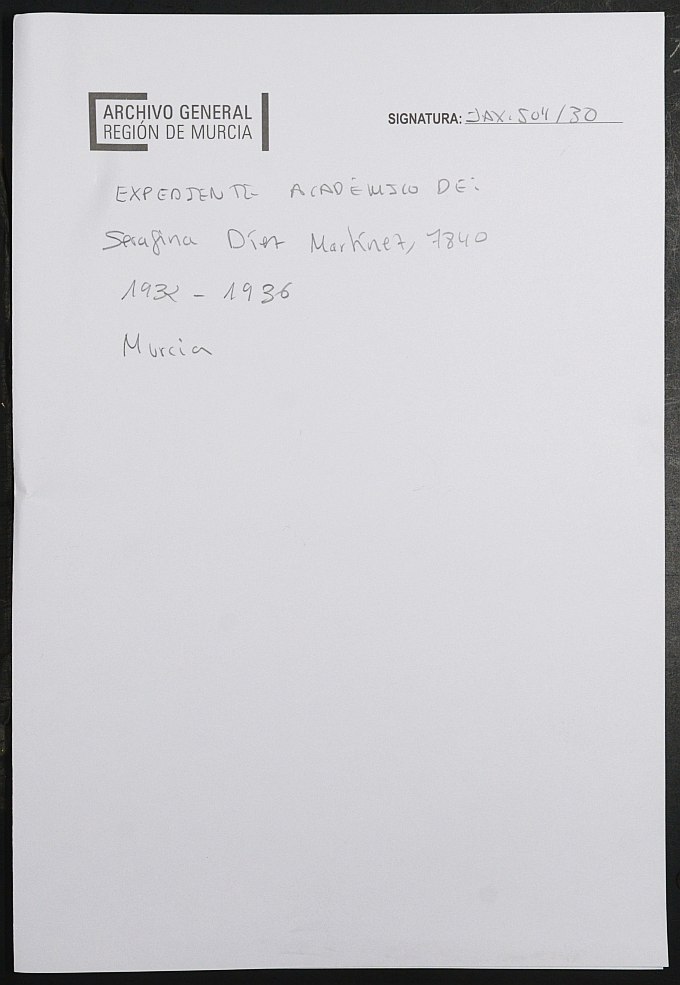 ARCHIVO GENERAL
REGIÓN DE MURCIA
SIGNATURA: JAX.504/30
EXPEDIENTE ACADÉMICO DE:
Serafina Díez Martínez, 7840
1932 - 1936
Murcia